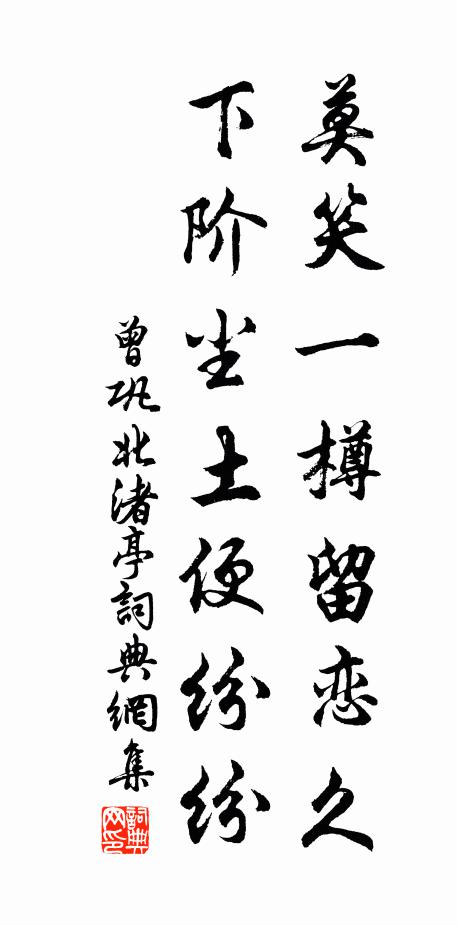 莫笑一樽留恋久
下阶尘土便纷纷
曾巩北渚亭詞典網集
詞典
网印